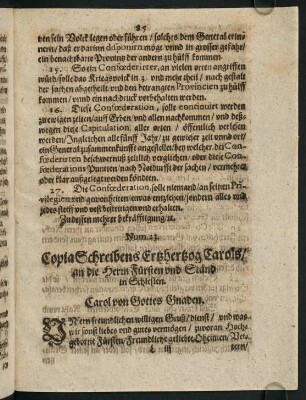 85
von sein Volck legen oder führen / solches dem General erin-
nern / daß er darinn disponirn möge / vnnd in grosser gefahr /
ein benachbarte Provinz der andern zu hülff kommen.
15. So ein Confœderirter, an vielen orten angriffen
würd / solle das Kriegsvolck in 2. vnd mehr theil / nach gestalt
der sachen abgetheilt / vnd den betrangten Provincien zu hülff
kommen / vnnd ein nachdruck verbehalten werden.
16. Diese Confœderation, solle continuirt werden
zu ewigen zeiten / auff Erben / vnd allen nachkommen / vnd deß-
wegen diese Capitulation, aller orten / öffentlich verlesen
werden / Ingleichen alle fünff Jahr / zu gewiser zeit vnnd ort /
ein General zusammenkunfft angestellet / bey welcher der Con-
fœderirten beschwernuß zeitlich verglichen / oder diese Con-
fœderations Puncten / nach Bedürfft der sachen / vermehret
oder klar außgelegt werden können.
17. Die Confœderation, solle niemand / an seinen Pri-
vilegien vnd gewonheiten / etwas entziehen / sondern alles vnd
jedes steiff vnd vest bestreitten vnd erhalten.
Zu dessen mehrer bekräfftigung / ꝛc.
Num. 23.
Copia Schreibens Ertzhertzog Carols /
an die Herrn Fürsten vnd Ständ
in Schlesien.
Carol von Gottes Gnaden.
Vnsern freundlichen willigen Gruß / dienst / vnd was
wir sonst liebes vnd gutes vermögen / zuvoran Hoch-
geborne Fürsten / Freundliche geliebte Oheimen / Vet-
L iij
tern /